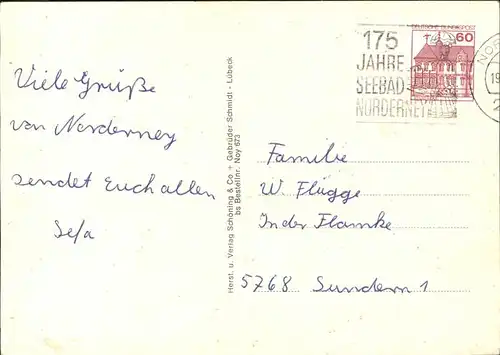 Viele Grüße
von Norderney
sendet Euch allen
Herst. u. Verlag Schöning & Co + Gebrüder Schmidt - Lübeck
bs Bestellnr. Noy 673
175
JAHRE
SEEBAD
NORDERNEY
DEUTSCHE BUNDESPOST
60
Familie
W. Flügge
In der Flamke
5768 Sundern 1